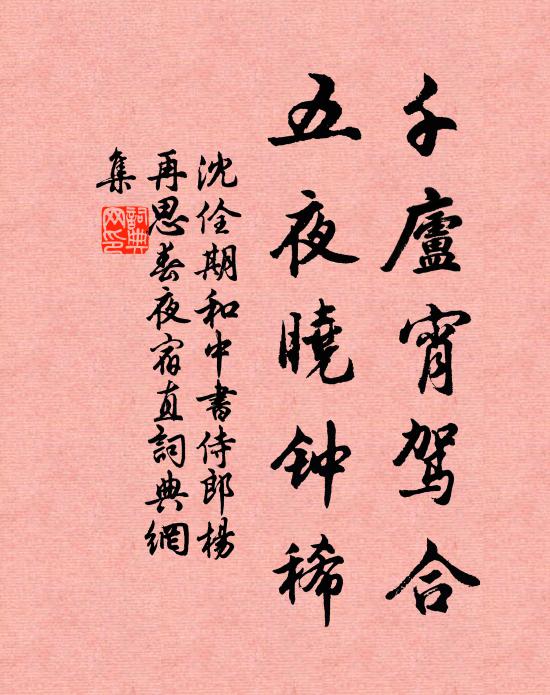 千廬宵駕合
五夜曉钟稀
沈佺期和中書侍郎楊
再思春夜宿直詞典網
集
詞典網印